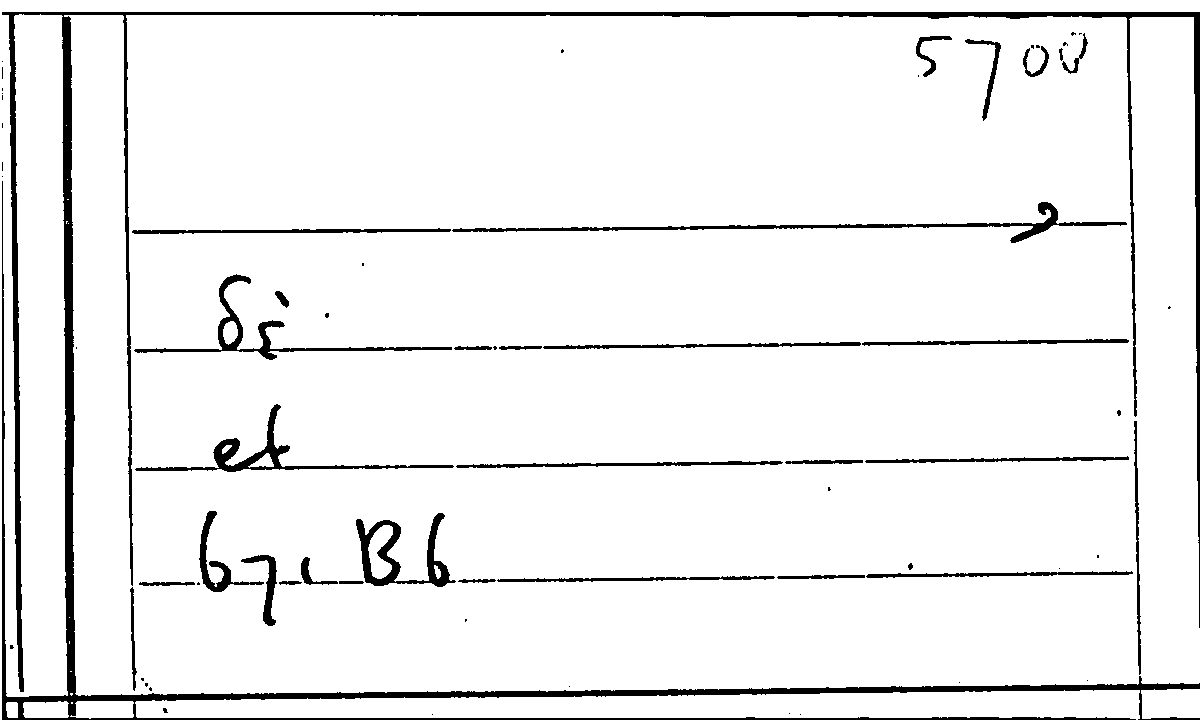 5700
δὲ
et
67, B6